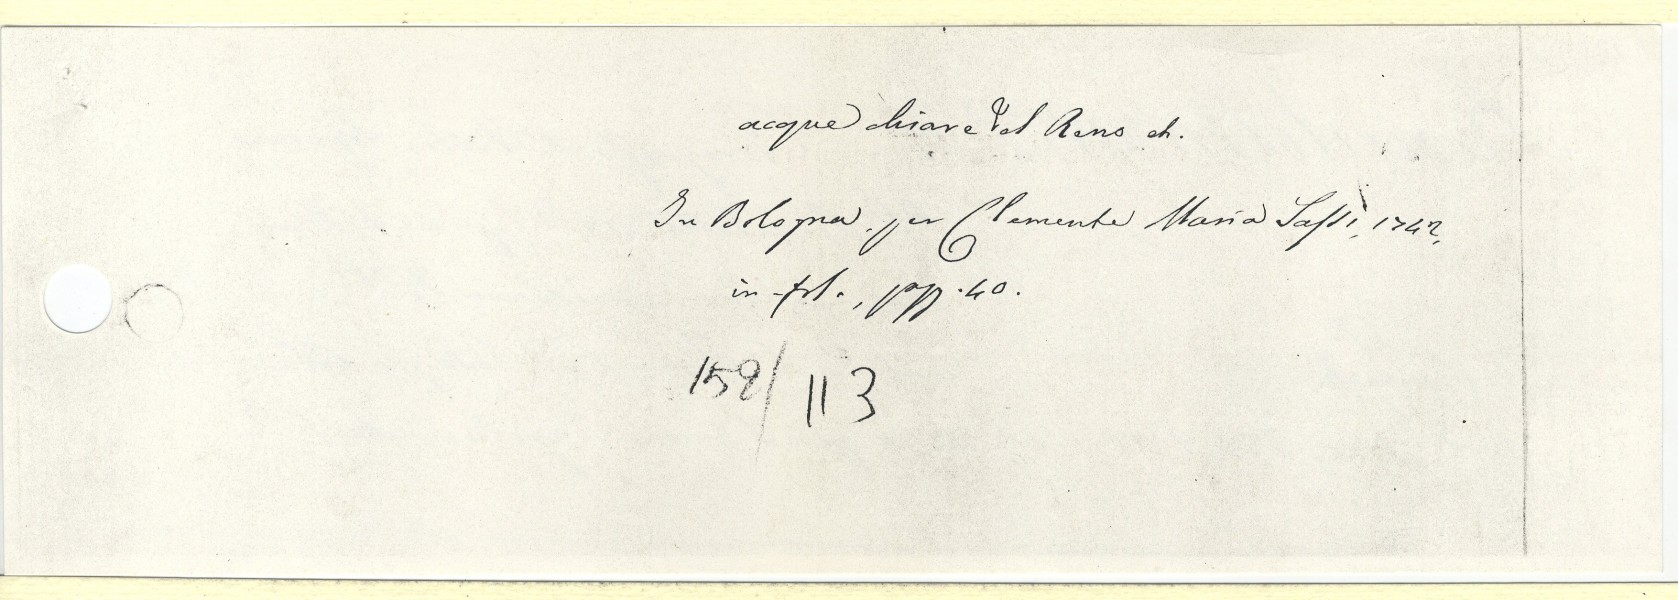 acque chiare del Reno ch.
In Bologna, per Clemente Maria Sassi, 1742,
in-fol., pp. 40.
159/113